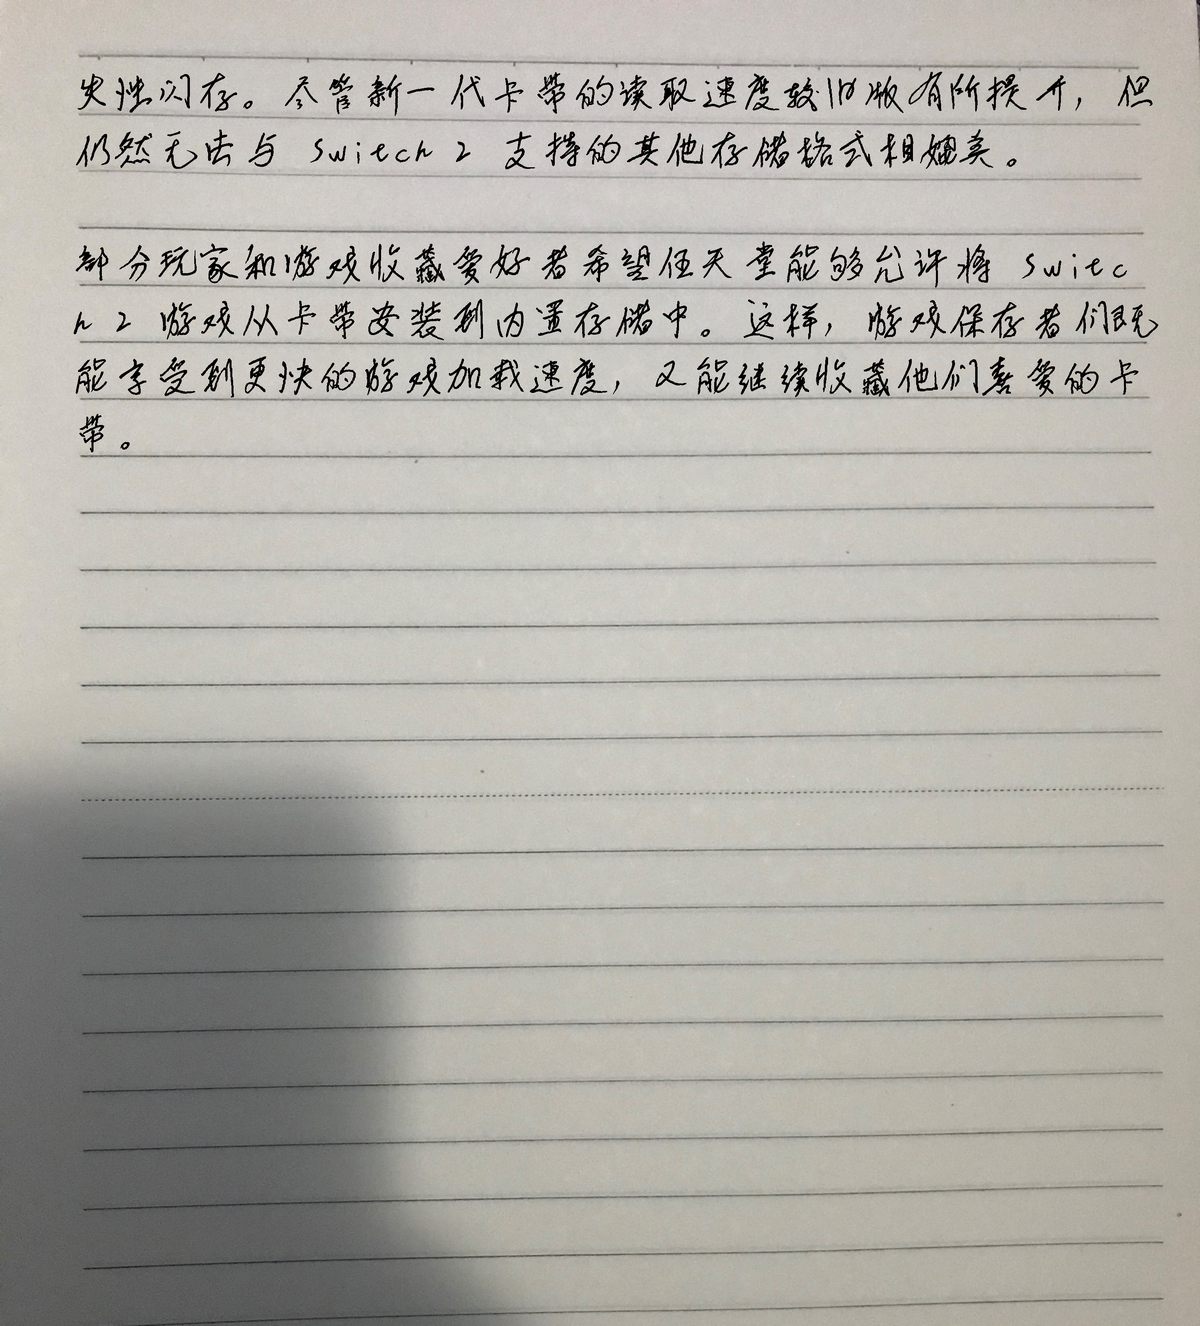 失性闪存。尽管新一代卡带的读取速度较旧版有所提升，但
仍然无法与 Switch 2 支持的其他存储格式相媲美。
部分玩家和游戏收藏爱好者希望任天堂能够允许将 Switc
h 2 游戏从卡带安装到内置存储中。这样，游戏保存者们既
能享受到更快的游戏加载速度，又能继续收藏他们喜爱的卡
带。